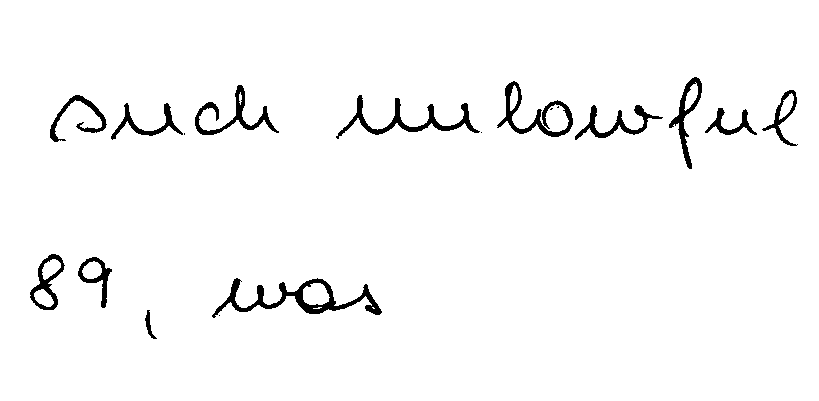 such unlawful
89, was